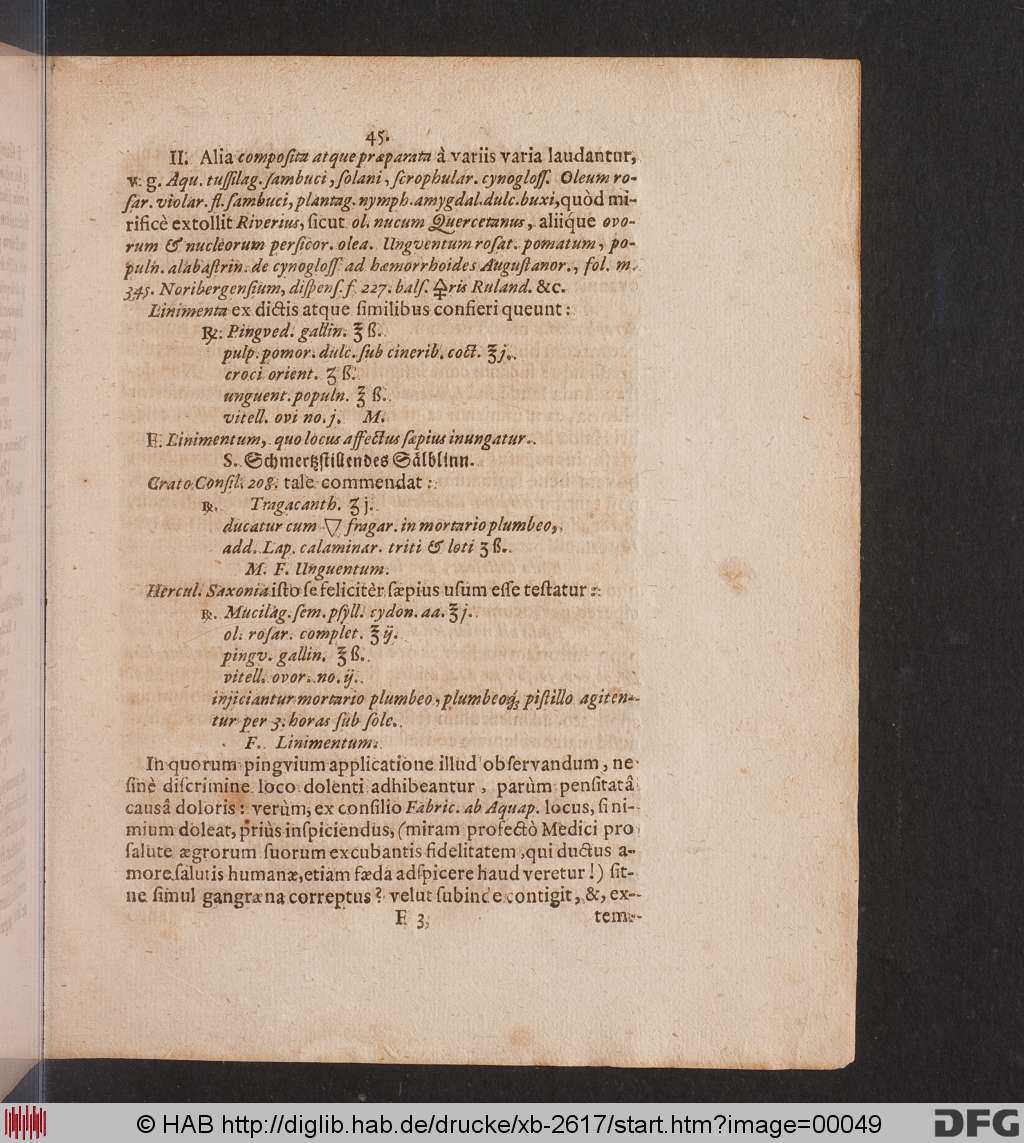 45.
II. Alia compoſita atque præparata à variis varia laudantur,
v. g. Aqu. tuſſilag. ſambuci, ſolani, ſcrophular. cynogloſſ. Oleum ro-
ſar. violar. fl. ſambuci, plantag. nymph. amygdal. dulc. buxi, quòd mi-
rificè extollit Riverius, ſicut ol. nucum Quercetanus, aliiq́ue ovo-
rum & nucleorum perſicor. olea. Ungventum roſat. pomatum, po-
puln. alabaſtrin. de cynogloſſ ad hæmorrhoides Auguſtanor., fol. m.
345. Noribergenſium, diſpenſ. f. 227. balſ. 🜍ris Ruland. &c.
Linimenta ex dictis atque ſimilibus confieri queunt:
℞. Pingved. gallin. ℥ ß.
pulp. pomor. dulc. ſub cinerib. coct. ℥ j.
croci orient. ʒ ß.
unguent. populn. ℥ ß.
vitell. ovi no. j. M.
F. Linimentum, quo locus affectus ſæpius inungatur.
S. Schmertzſtillendes Sälblinn.
Crato Conſil. 208. tale commendat:
℞. Tragacanth. ʒ j.
ducatur cum ▽ fragar. in mortario plumbeo,
add. Lap. calaminar. triti & loti ʒ ß.
M. F. Unguentum.
Hercul. Saxonia iſto ſe felicitèr ſæpius uſum eſſe teſtatur:
℞. Mucilag. ſem. pſyll. cydon. aa. ℥ j.
ol. roſar. complet. ℥ ij.
pingv. gallin. ℥ ß.
vitell. ovor. no. ij.
injiciantur mortario plumbeo, plumbeoq́; piſtillo agiten-
tur per 3. horas ſub ſole.
F. Linimentum.
In quorum pingvium applicatione illud obſervandum, ne
ſinè diſcrimine loco dolenti adhibeantur, parùm penſitatâ
causâ doloris: verùm, ex conſilio Fabric. ab Aquap. locus, ſi ni-
mium doleat, priùs inſpiciendus, (miram profectò Medici pro
ſalute ægrorum ſuorum excubantis fidelitatem, qui ductus a-
more ſalutis humanæ, etiam fæda adſpicere haud veretur!) ſit-
ne ſimul gangræna correptus? velut ſubinde contigit, &, ex-
F 3 tem-
© HAB http://diglib.hab.de/drucke/xb-2617/start.htm?image=00049
DFG